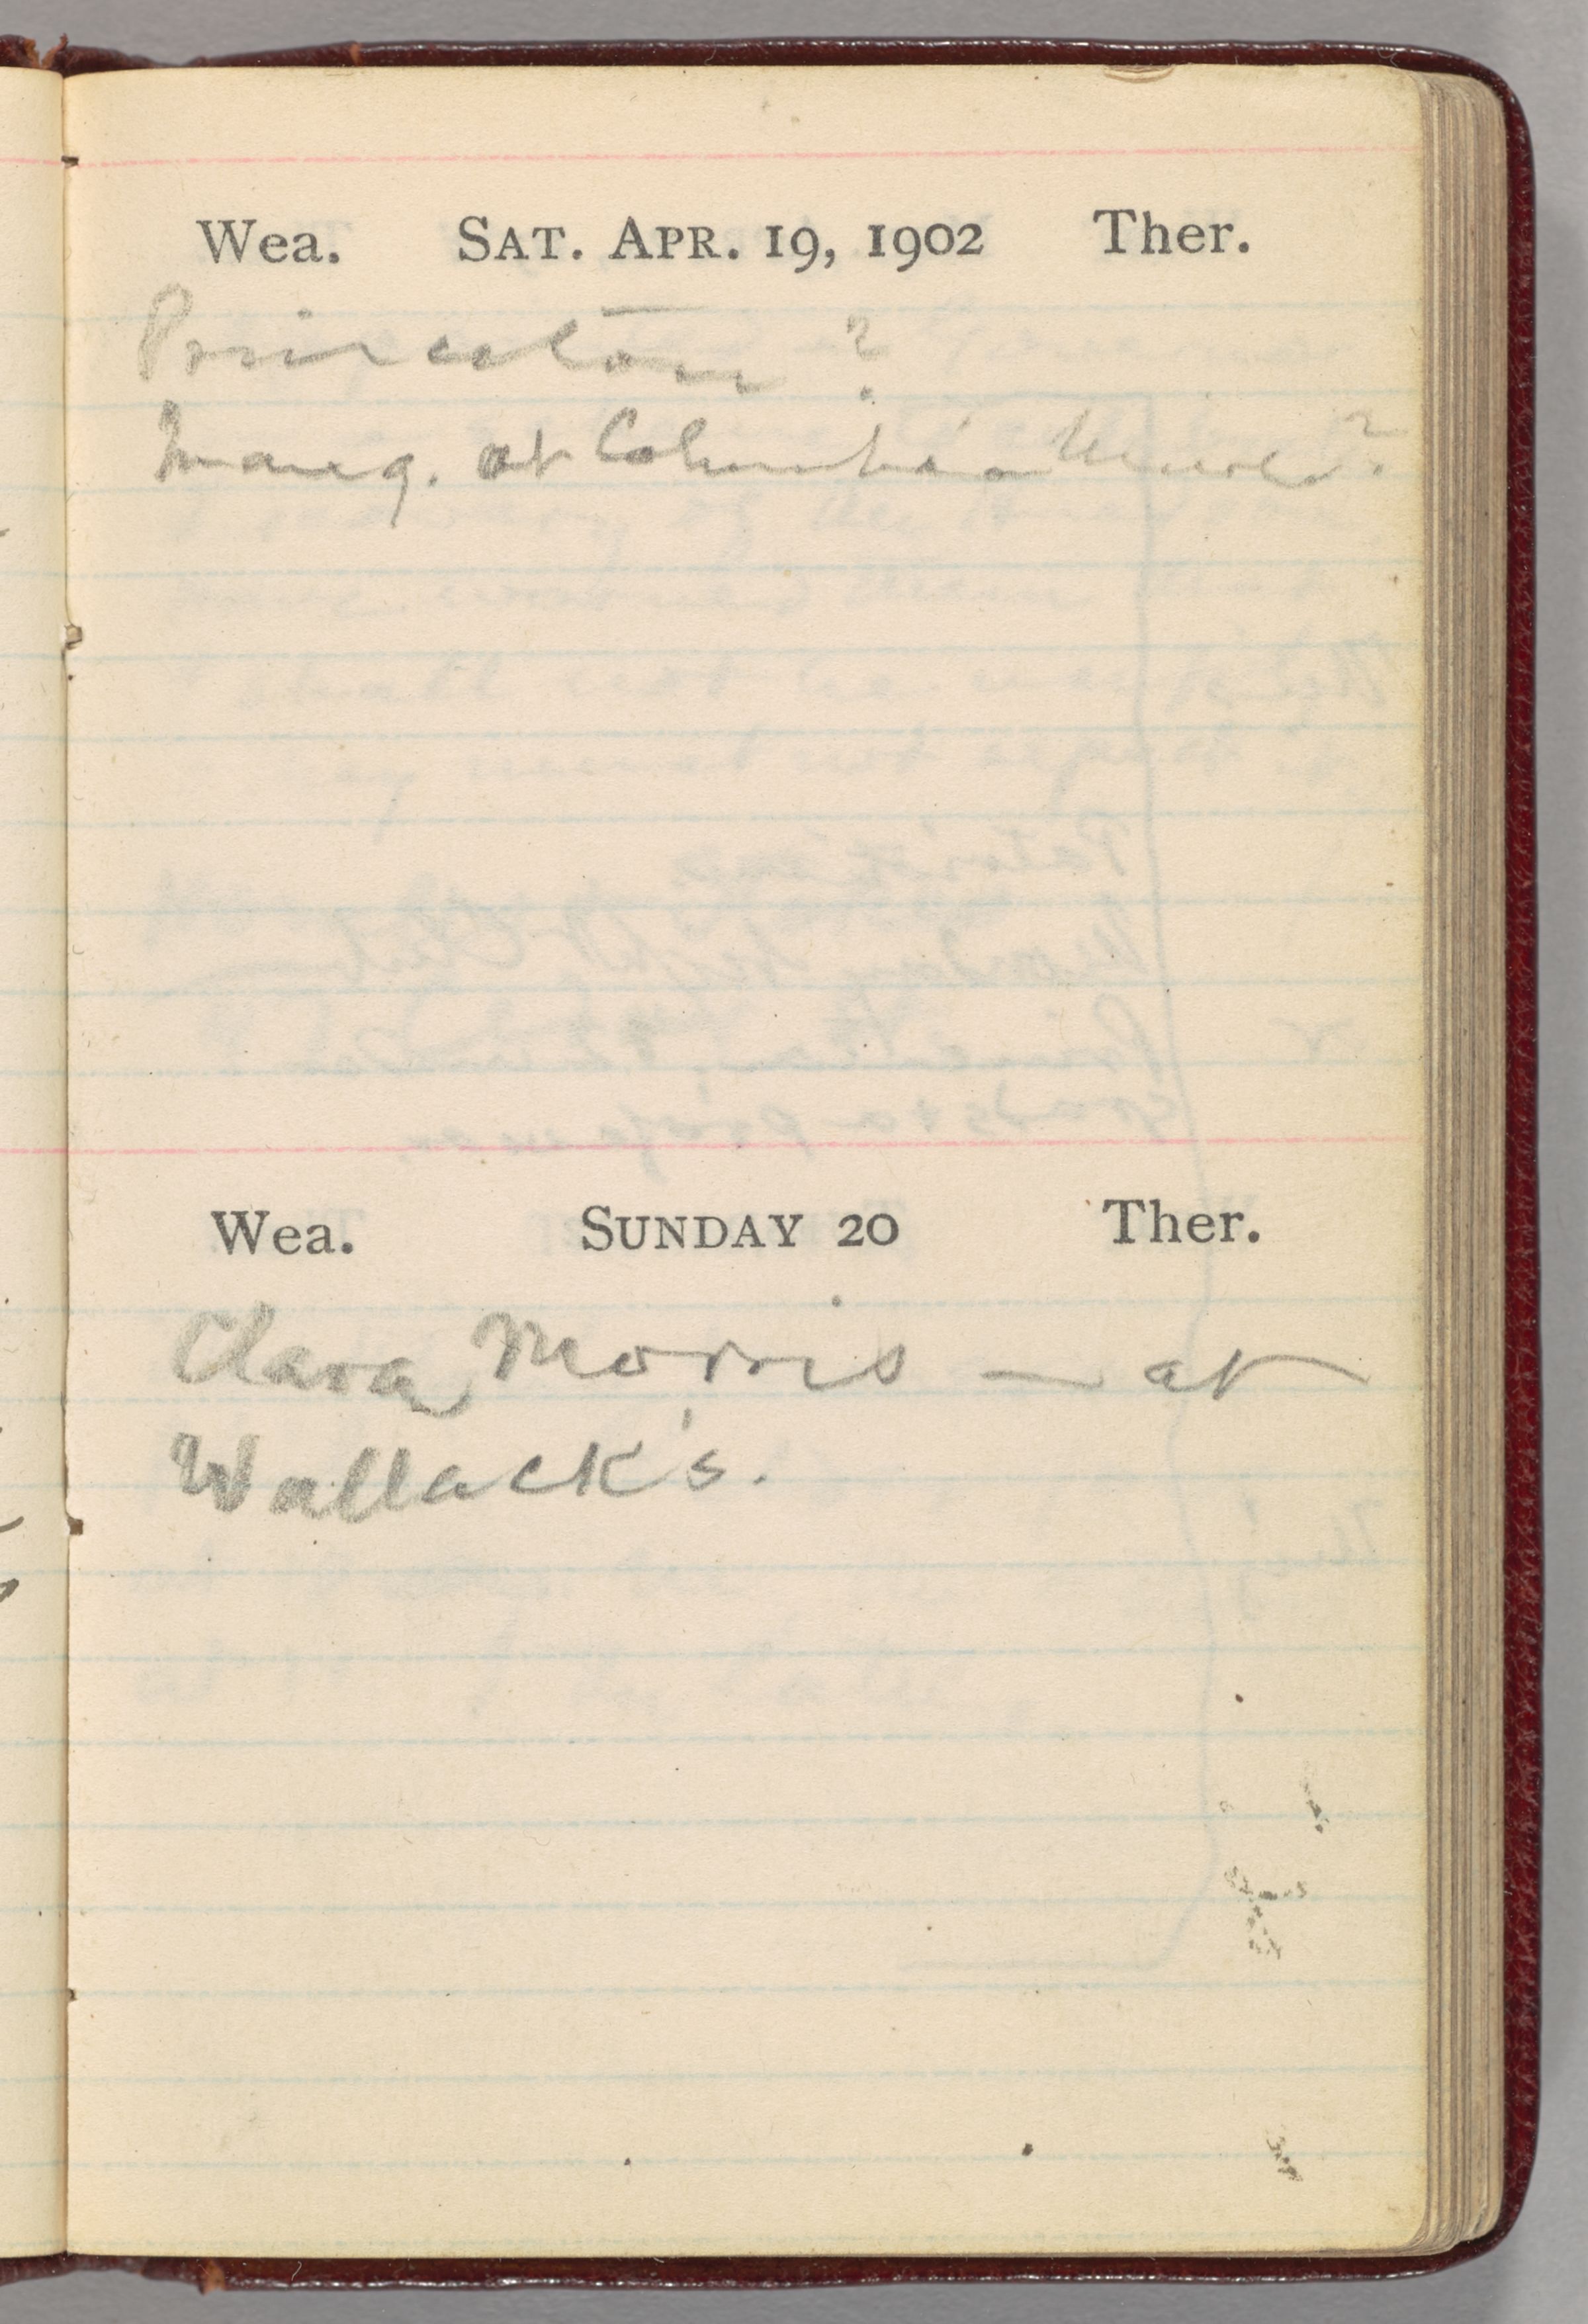 Wea. SAT. APR. 19, 1902 Ther.
Princeton ?
Inaug. at Columbia Univ. ?
Wea. SUNDAY 20 Ther.
Clara Morris — at
Wallack's.